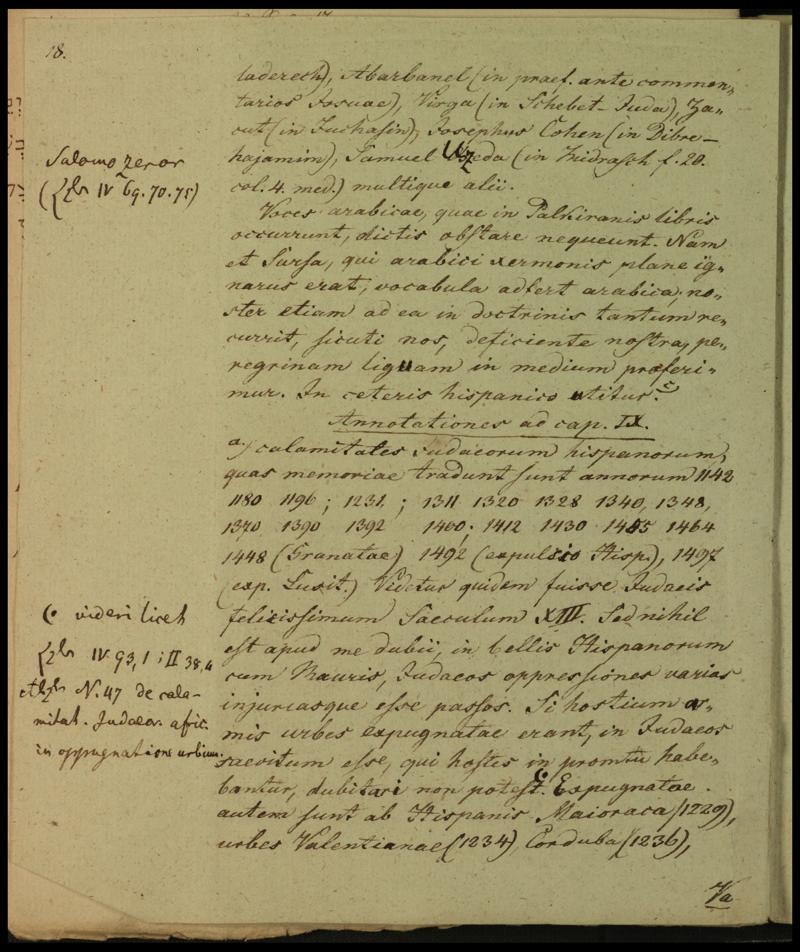 18.
laderech), Abarbanel (in praef. ante commen-
tarios Josuae), Virga (in Schebet-Juda), Za-
cut (in Juchasin), Josephus Cohen (in Dibre-
hajamim), Samuel Uzeda (in Midrasch f. 20.
col. 4. med.) multique alii.
Salomo zeror
IV 69. 70. 75)
Voces arabicae, quae in Palkiranis libris
occurrunt, dictis obstare nequeunt. Nam
et Sarsa, qui arabici sermonis plane ig-
narus erat, vocabula adfert arabica; no-
ster etiam ad ea in doctrinis tantum re-
currit, sicuti nos, deficiente nostra, pe-
regrinam liguam in medium praeferi-
mur. In ceteris hispanico utitur.
Annotationes ad cap. IX.
a.) calamitates Judaeorum hispanorum,
quas memoriae tradunt sunt annorum 1142
1180 1196 ; 1231 ; 1311 1320 1328 1340, 1348,
1370 1390 1392 1460; 1412 1430 1455 1464
1448 (Granatae) 1492 (expulsio Hisp.), 1497
(exp. Lusit.) Videtur quidem fuisse Judaeis
felicissimum Saeculum XIII. Sed nihil
est apud me dubii, in bellis Hispanorum
cum Mauris, Judaeos oppressiones varias
injuriasque esse passos. Si hostium ar-
mis urbes expugnatae erant, in Judaeos
saevitum esse, qui hostes in promtu habe-
bantur, dubitari non potest. Expugnatae
autem sunt ab Hispanis Maioraca (1229),
urbes Valentianae (1234), Corduba (1236),
(• videri licet
IV. 93, 1 ; II 38, 4
N. 47 de cala-
mitat. Judaeor. afric.
in oppugnatione urbium.
Va